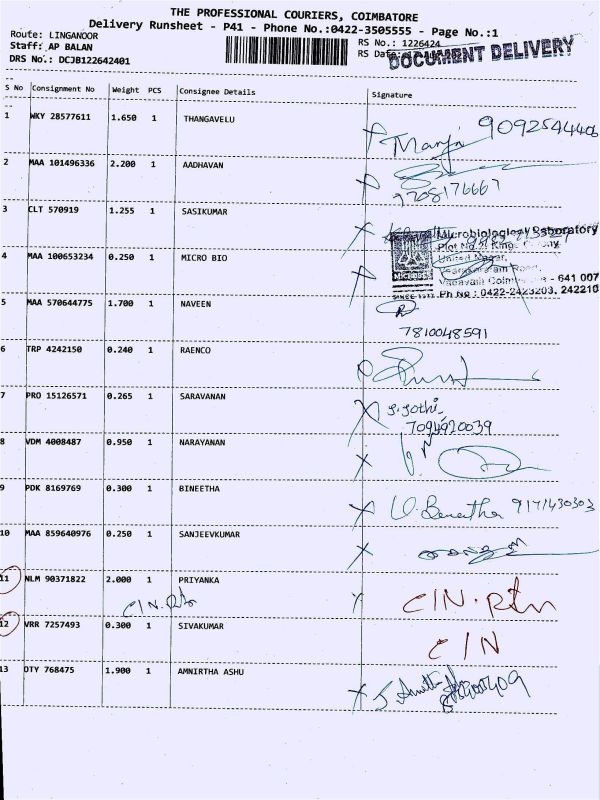 THE PROFESSIONAL COURIERS, COIMBATORE
Delivery Runsheet - P41 - Phone No.:0422-3505555 - Page No.:1
Route: LINGANOOR
RS No.: 1226424
Staff: AP BALAN
RS Date:
DOCUMENT DELIVERY
DRS No.: DCJB122642401
S No Consignment No Weight PCS Consignee Details Signature
1 WKY 28577611 1.650 1 THANGAVELU
9092544406
2 MAA 101496336 2.200 1 AADHAVAN
9708176667
3 CLT 570919 1.255 1 SASIKUMAR
Microbiological Laboratory
Plot No.2, Kings Colony
4 MAA 100653234 0.250 1 MICRO BIO
United Nagar,
Road,
- 641 007
Ph No : 0422-2423203, 242210
5 MAA 570644775 1.700 1 NAVEEN
7810048591
6 TRP 4242150 0.240 1 RAENCO
7 PRO 15126571 0.265 1 SARAVANAN
S. Jothi,
7094920039
8 VDM 4008487 0.950 1 NARAYANAN
9 PDK 8169769 0.300 1 BINEETHA
9171430303
10 MAA 859640976 0.250 1 SANJEEVKUMAR
11 NLM 90371822 2.000 1 PRIYANKA
C/N. Rtn
C/N. Rtn
12 VRR 7257493 0.300 1 SIVAKUMAR
C/N
13 DTY 768475 1.900 1 AMNIRTHA ASHU